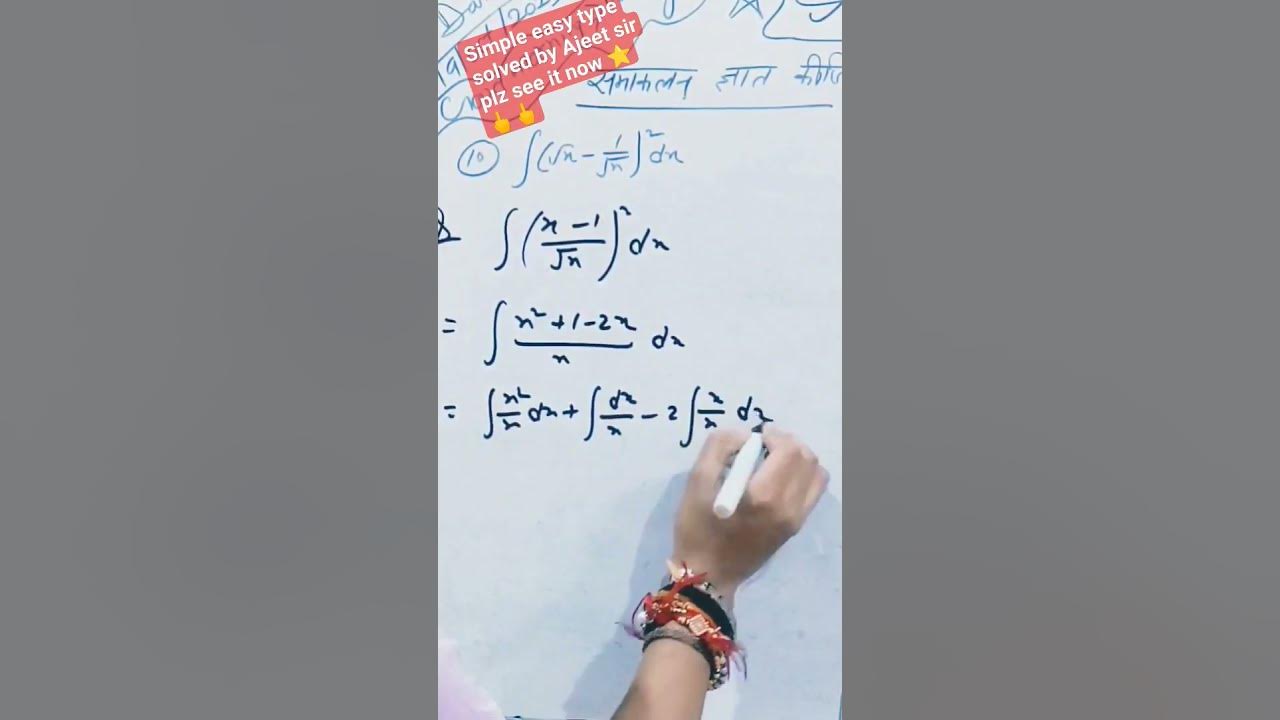 Simple easy type
solved by Ajeet sir
plz see it now ⭐
👆👆
समाकलन ज्ञात
10 ∫(√x - 1/√x)² dx
∫((x - 1)/√x)² dx
= ∫ (x² + 1 - 2x)/x dx
= ∫ x²/x dx + ∫ dx/x - 2 ∫ x/x dx